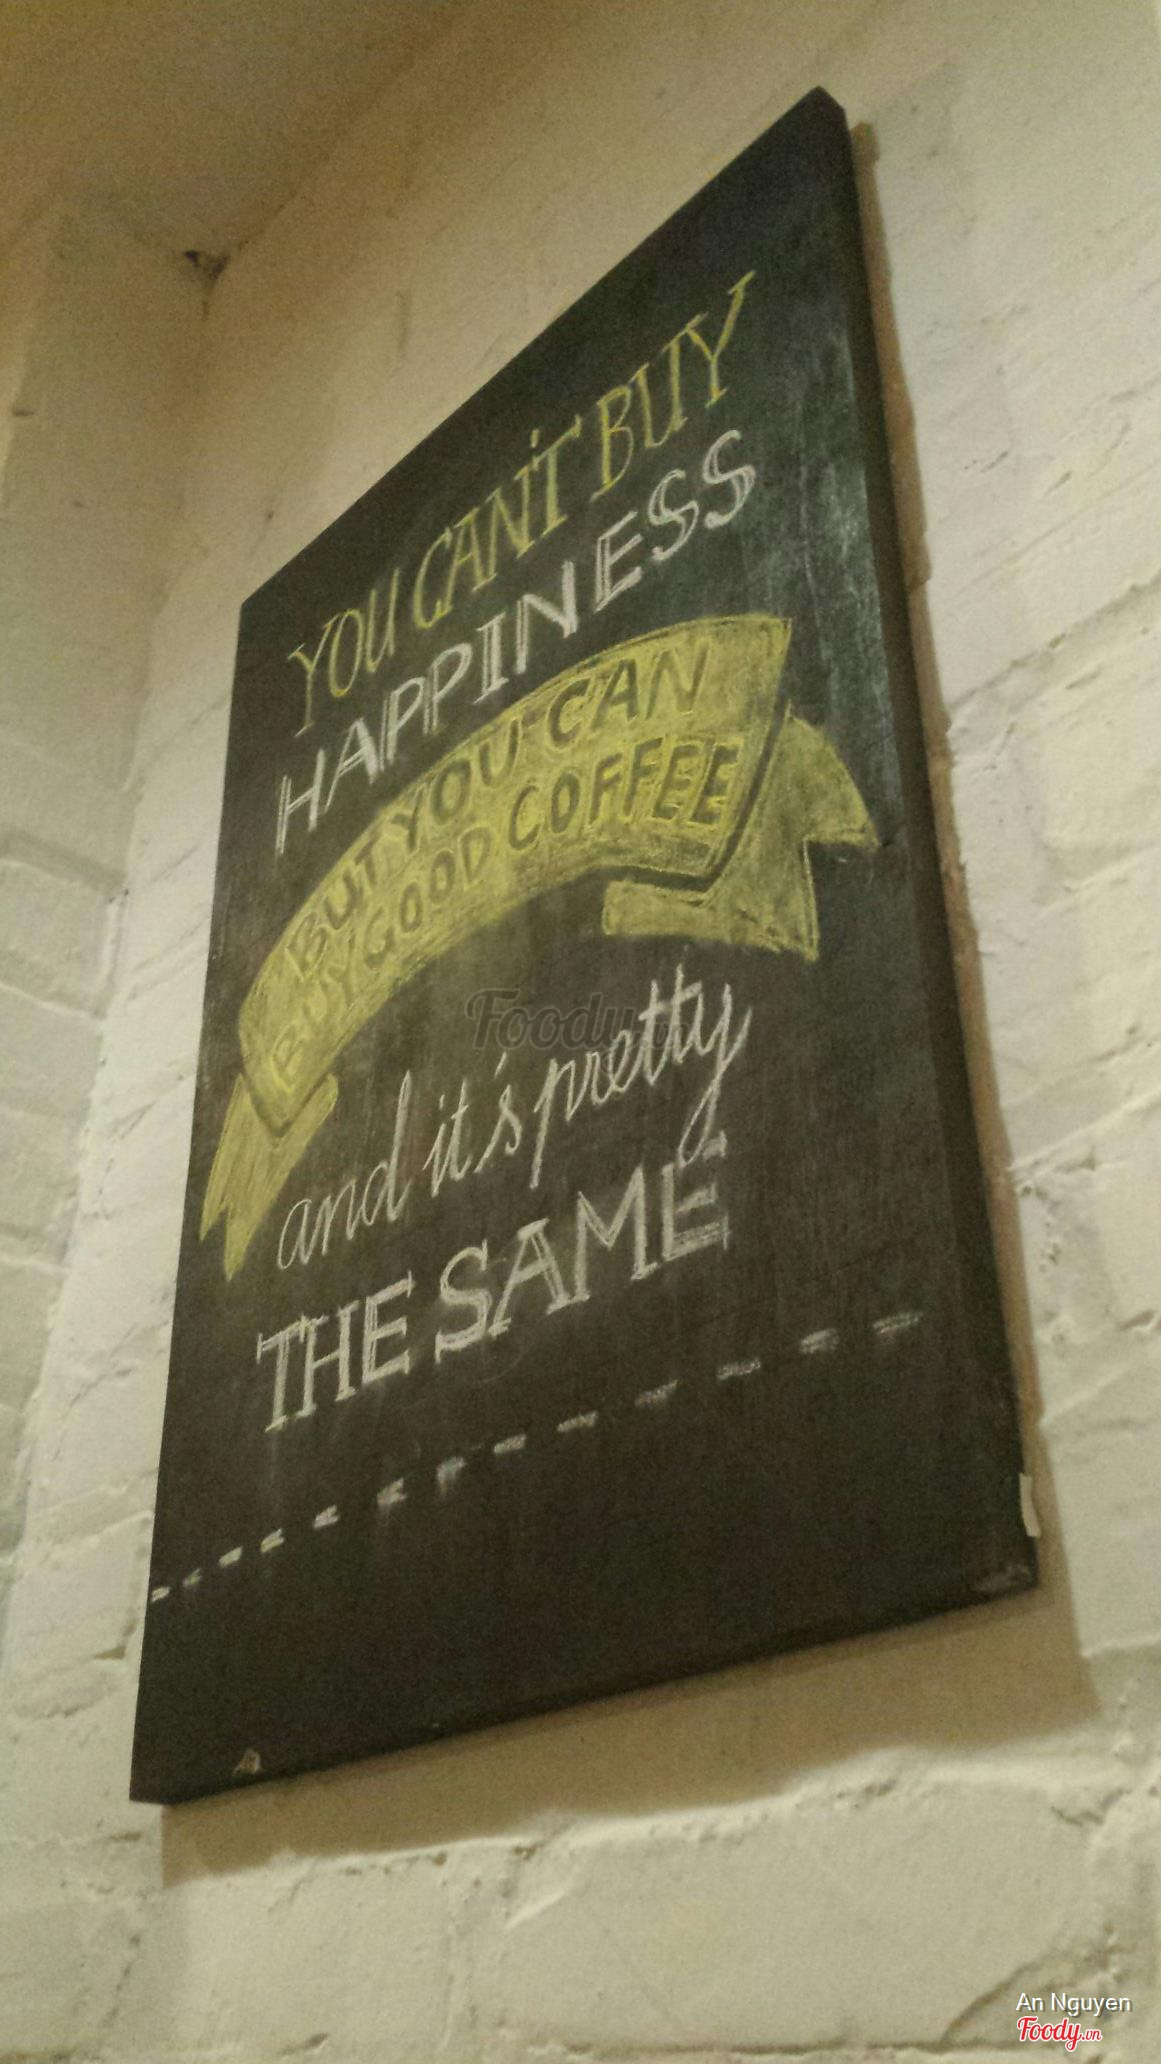 YOU CAN'T BUY
HAPPINESS
BUT YOU CAN
BUY GOOD COFFEE
and it's pretty
THE SAME
Foody.vn
An Nguyen
Foody.vn